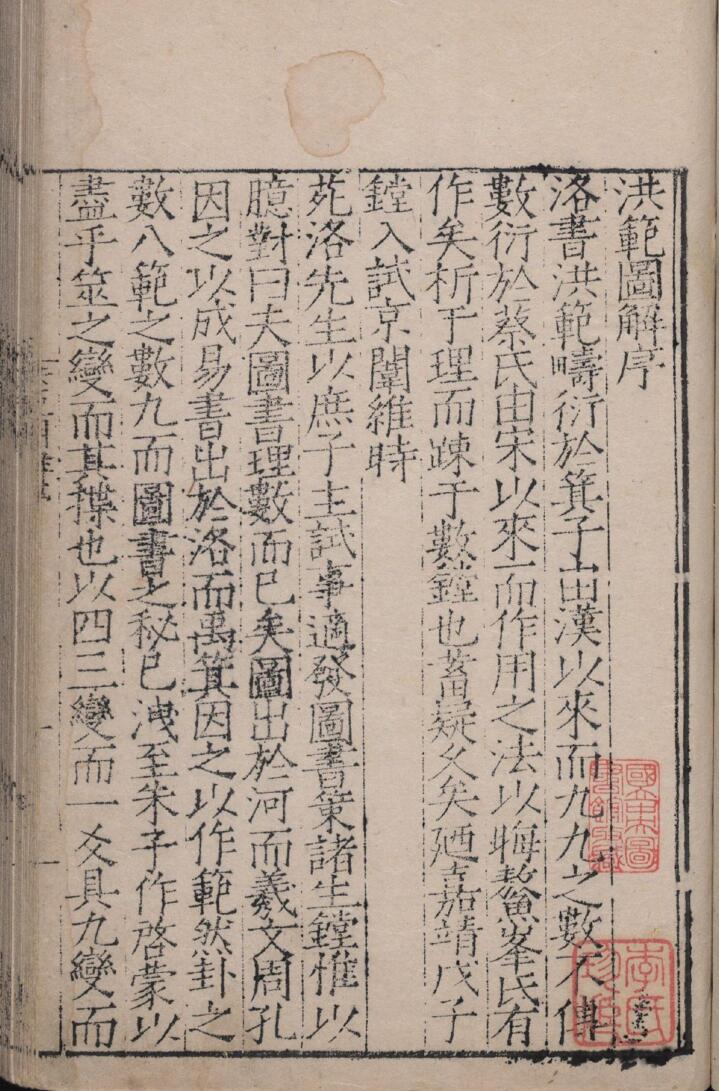 洪範圖解序
洛書洪範疇衍於箕子由漢以來而九九之數不傳
數衍於蔡氏由宋以來而作用之法以晦鰲峯氏有
作矣析于理而踈于數鏜也蓄疑久矣廼嘉靖戊子
鏜入試京闈維時
苑洛先生以庶子主試事適發圖書策諸生鏜惟以
臆對曰夫圖書理數而已矣圖出於河而羲文周孔
因之以成易書出於洛而禹箕因之以作範然卦之
數八範之數九而圖書之秘已洩至朱子作啓蒙以
盡乎筮之變而其揲也以四三變而一爻具九變而
國立北平圖書館收藏
李氏